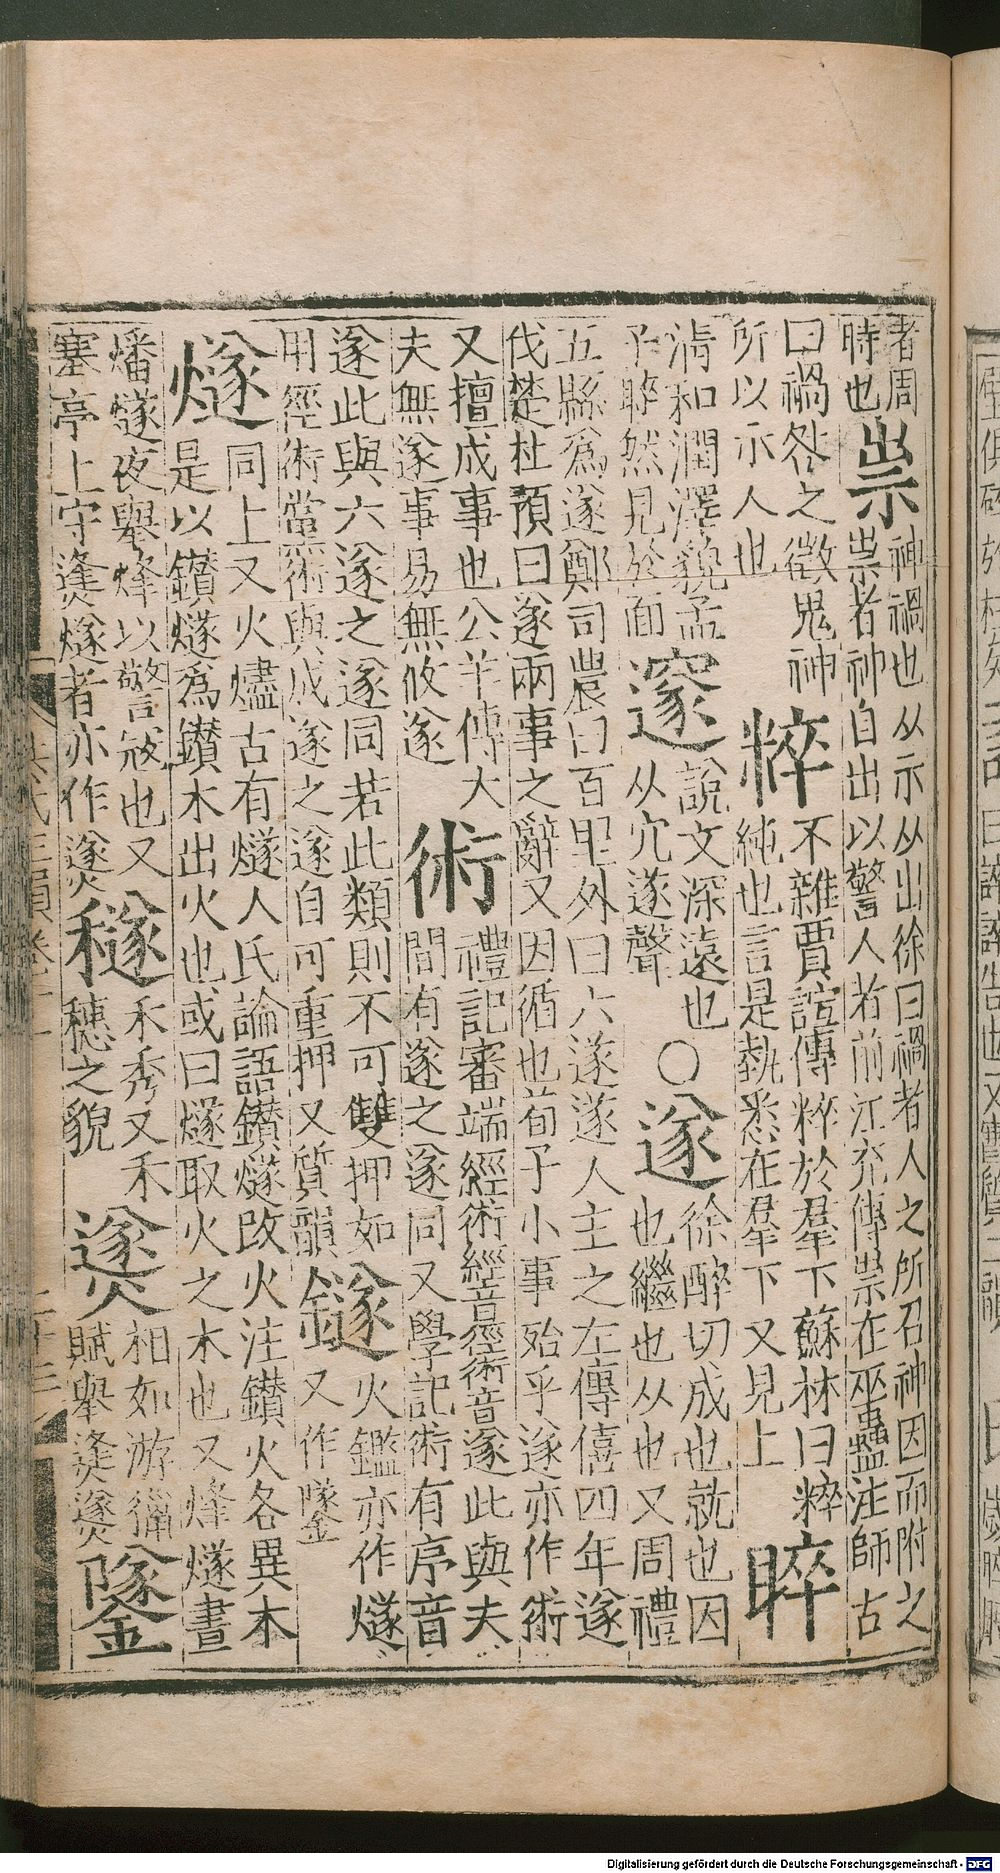 者周
時也
祟
神禍也从示从出徐曰禍者人之所召神因而附之
祟者神自出以警人者前江充傳祟在巫蠱注師古
曰禍咎之徵鬼神
所以示人也
粹
不雜賈誼傳粹於羣下蘇林曰粹
純也言是熟悉在羣下又見上
睟
清和潤澤貌孟
子睟然見於面
邃
說文深遠也
从穴遂聲
〇
遂
徐醉切成也就也因
也繼也从也又周禮
五縣爲遂鄭司農曰百里外曰六遂遂人主之左傳僖四年遂
伐楚杜預曰遂兩事之辭又因循也荀子小事殆乎遂亦作術
又擅成事也公羊傳大
夫無遂事易無攸遂
術
禮記審端經術經音徑術音遂此與夫
間有遂之遂同又學記術有序音
遂此與六遂之遂同若此類則不可雙押如
用經術當術與成遂之遂自可重押又質韻
鐩
火鑑亦作燧
又作䥙
燧
同上又火燼古有燧人氏論語鑽燧改火注鑽火各異木
是以鑽燧爲鑽木出火也或曰燧取火之木也又烽燧晝
燔燧夜舉烽以警寇也又
塞亭上守㷭燧者亦作㸂
穟
禾秀又禾
穗之貌
㸂
相如游獵
賦舉㷭㸂
䥙
Digitalisierung gefördert durch die Deutsche Forschungsgemeinschaft - DFG